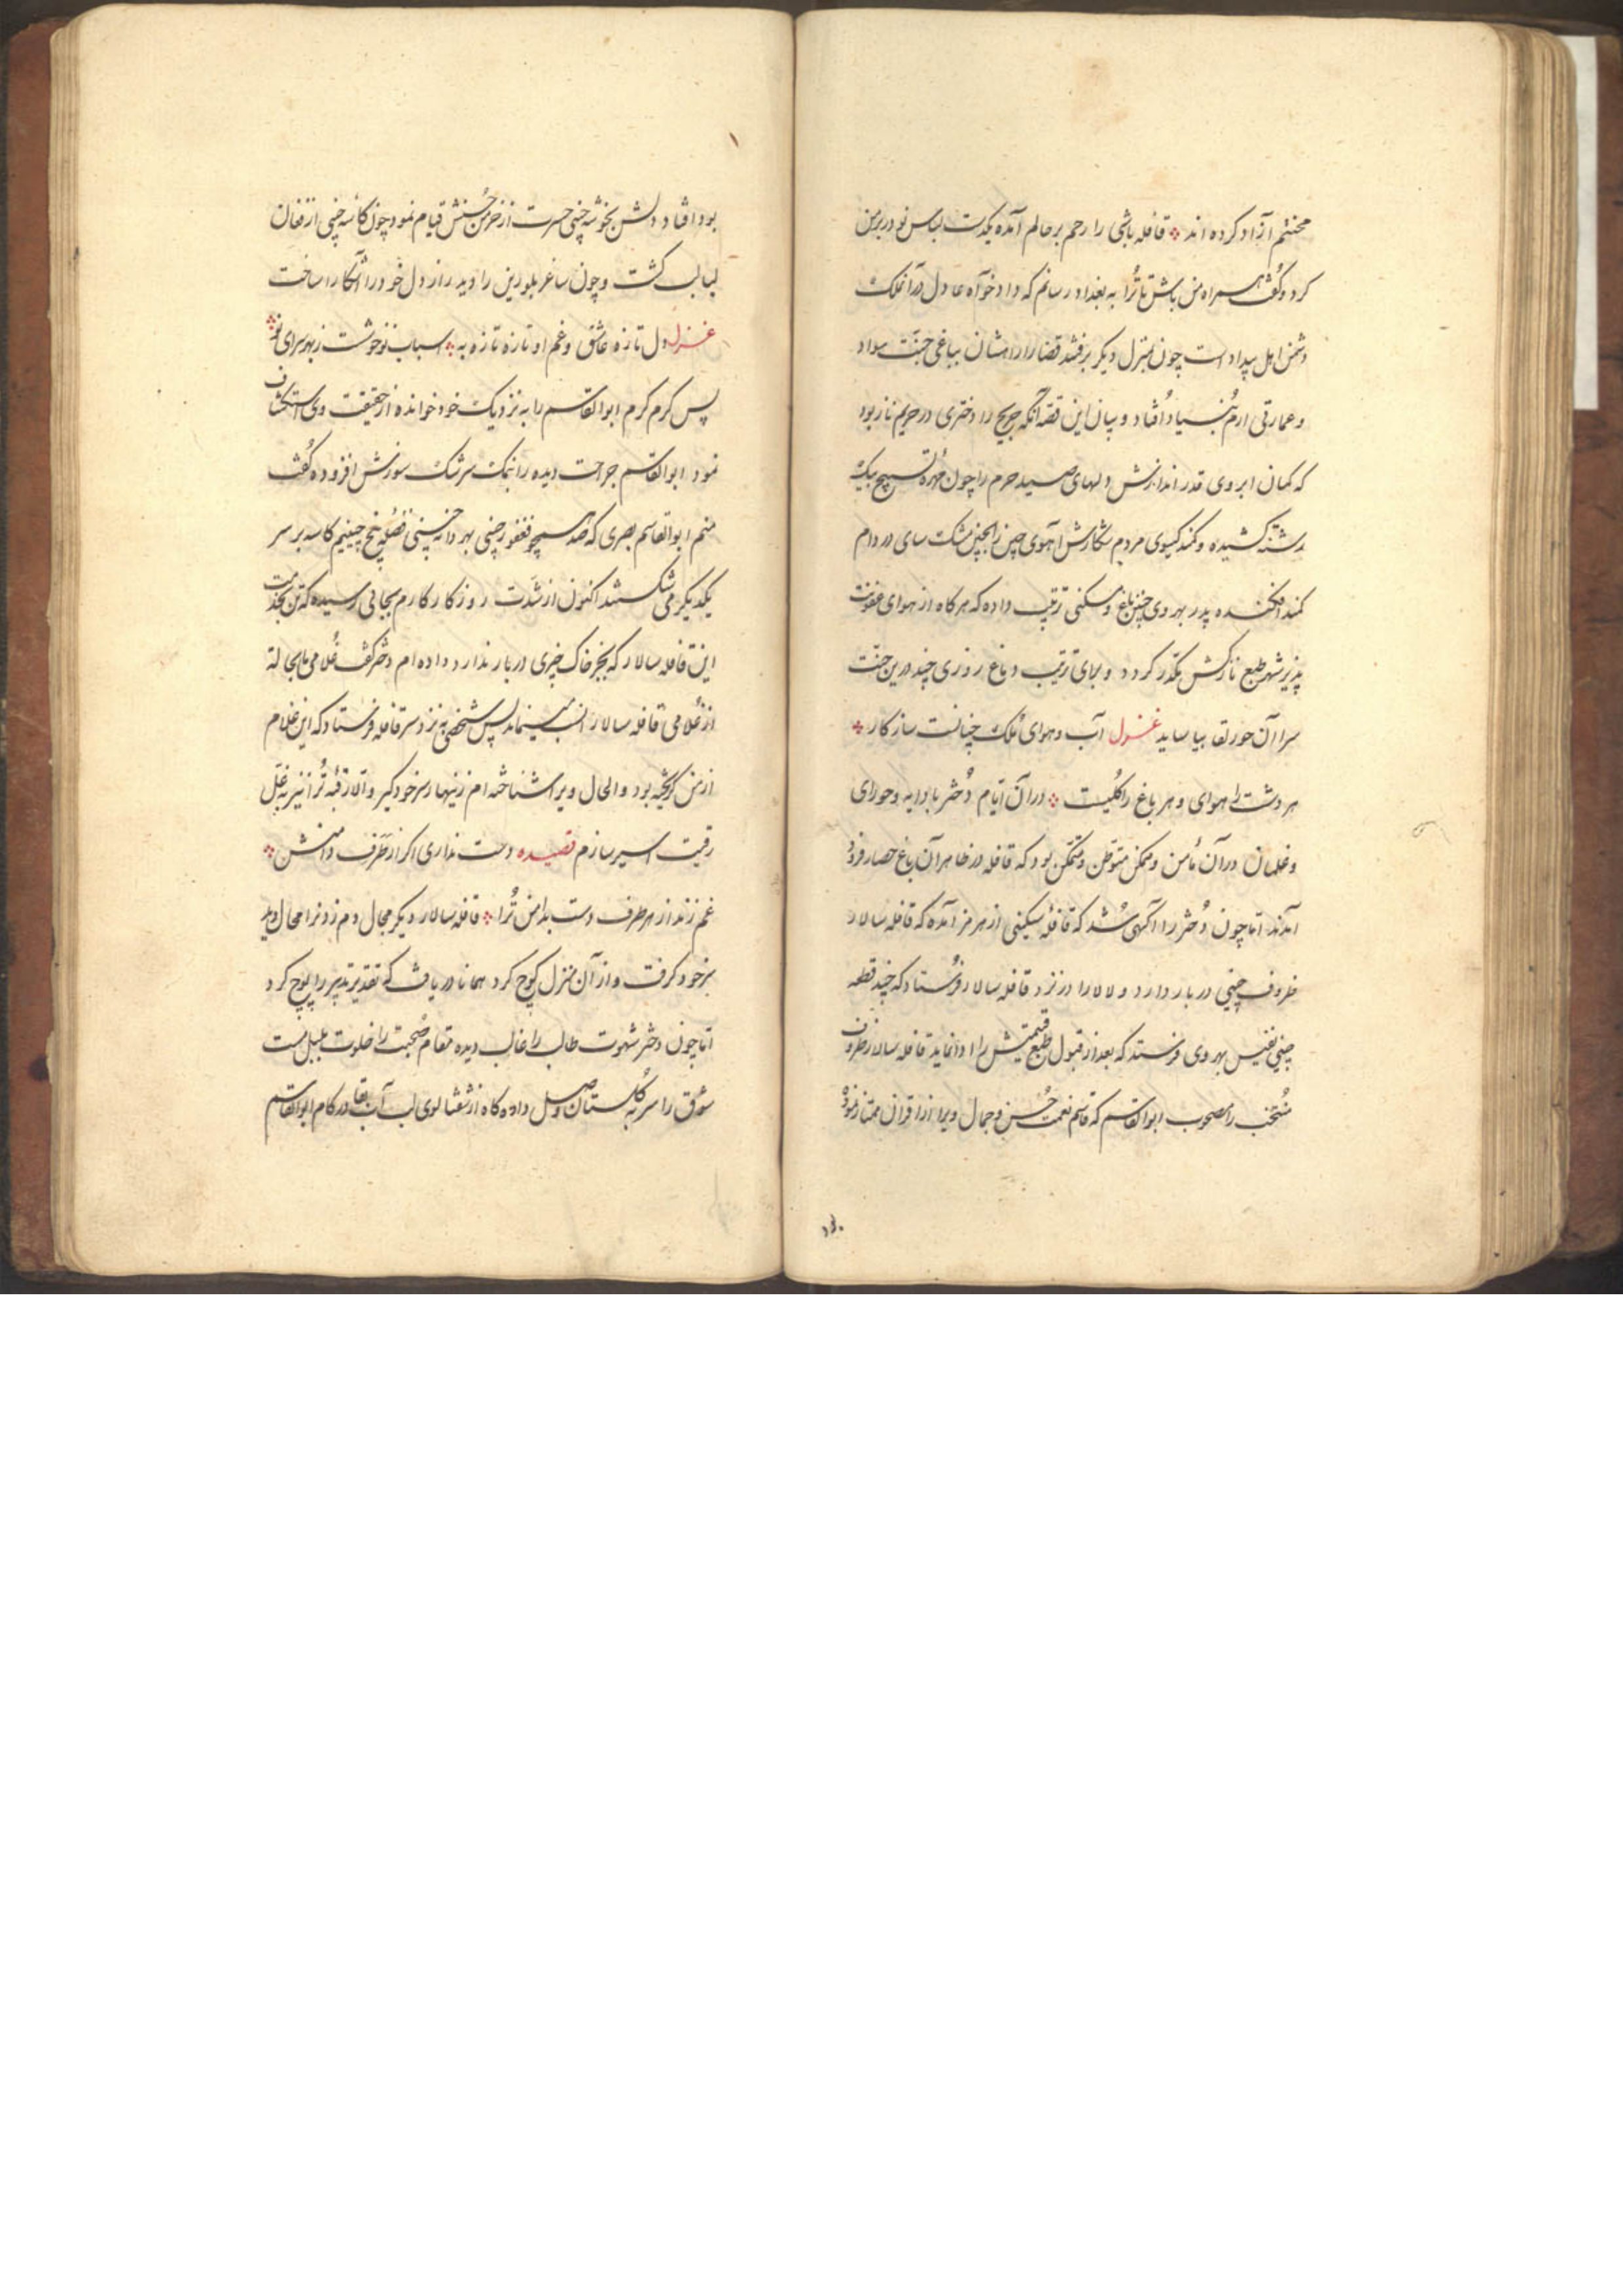 محنتم آزاد کرده اند قافله باشی را رحم بر حالم آمده یکدست لباس نو در بر من
کرد و گفت همراه من باش تا ترا به بغداد رسانم که دادخواه عادل در آنملک
دشمن اهل بیداد است چون بمنزل دیگر برفتند قضا را راهشان بباغی جنت سواد
و عمارتی ارم بنیاد افتاد و بیان این قصه آنکه جریح را دختری در حریم ناز بود
که کمان ابروی قدر اندازش دلهای صید حرم را چون مهره تسبیح بیک
رشته کشیده و کمند گیسوی مردم شکارش آهوی چین را بچین مشک سای در دام
کمند افکنده پدر بهر وی چنین باغ و مسکنی ترتیب داده که هرگاه از هوای عفونت
پذیر شهر طبع نازکش مکدر گردد و برای ترتیب دماغ روزی چند درین جنت
سرا آن حور لقا بیاساید غزل آب و هوای ملک چنانست سازکار
هر دشت را هوای و هر باغ را گلیست در آن ایام دختر با دایه و حورای
و غلمان در آن مأمن و ممکن متوطن و متمکن بود که قافله در ظاهر آن باغ حصار فرود
آمدند اما چون دختر را آگهی شد که قافله سنگینی از هرمز آمده که قافله سالار
ظروف چینی در بار دارد و لالا را در نزد قافله سالار فرستاد که چند قطعه
چینی نفیس بهر وی فرستد که بعد از قبول طبع قیمتش را ادا نماید قافله سالار ظروف
منتخب را مصحوب ابوالقاسم که قاسم نعمت حسن و جمال ویرا از اقران ممتاز نموده
بود افتاد دلش بخوشه چینی حسرت از خرمن حسنش قیام نمود چون کاسه چینی از فغان
لبالب گشت و چون ساغر بلورین را دید راز دل خود را آشکارا ساخت
غزل دل تازه عاشق و غم او تازه تازه به اسباب نو خوشست ز بهر سرای نو
پس گرم گرم ابوالقاسم را به نزدیک خود خوانده از حقیقت وی استکشاف
نمود ابوالقاسم جراحت دیده را بنمک سرشک سوزش افزوده گفت
منم ابوالقاسم بصری که صد همچو فغفور چینی بهر دانه چینی فضله پنج چینیم کاسه بر سر
یکدیگر می شکستند اکنون از شدت روزگار کارم بجائی رسیده که تن بخدمت
این قافله سالار که بجز خاک چیزی در بار ندارد داده ام دختر گفت غلامی ما بجا له
از غلامی قافله سالار انسب مینماید پس شخصی به نزد سر قافله فرستاد که این غلام
از من گریخته بود و الحال ویرا شناخته ام زنهار سر خود گیر و الا رقبه ترا نیز به غل
رقیت اسیر سازم قصیده دست نداری اگر از طرف دامنش
غم زند از هر طرف دست بدامن ترا قافله سالار دیگر مجال دم زدن را محال دید
سر خود گرفت و از آن منزل کوچ کرد همانا دریافت که تقدیر تدبیر را پوچ کرد
اما چون دختر شهوت طالب را غالب دیده مقام صحبت را خلوت بلبل مست
شوق را سر به گلستان وصل داده گاه از شفتالوی لب آب بقا در کام ابوالقاسم